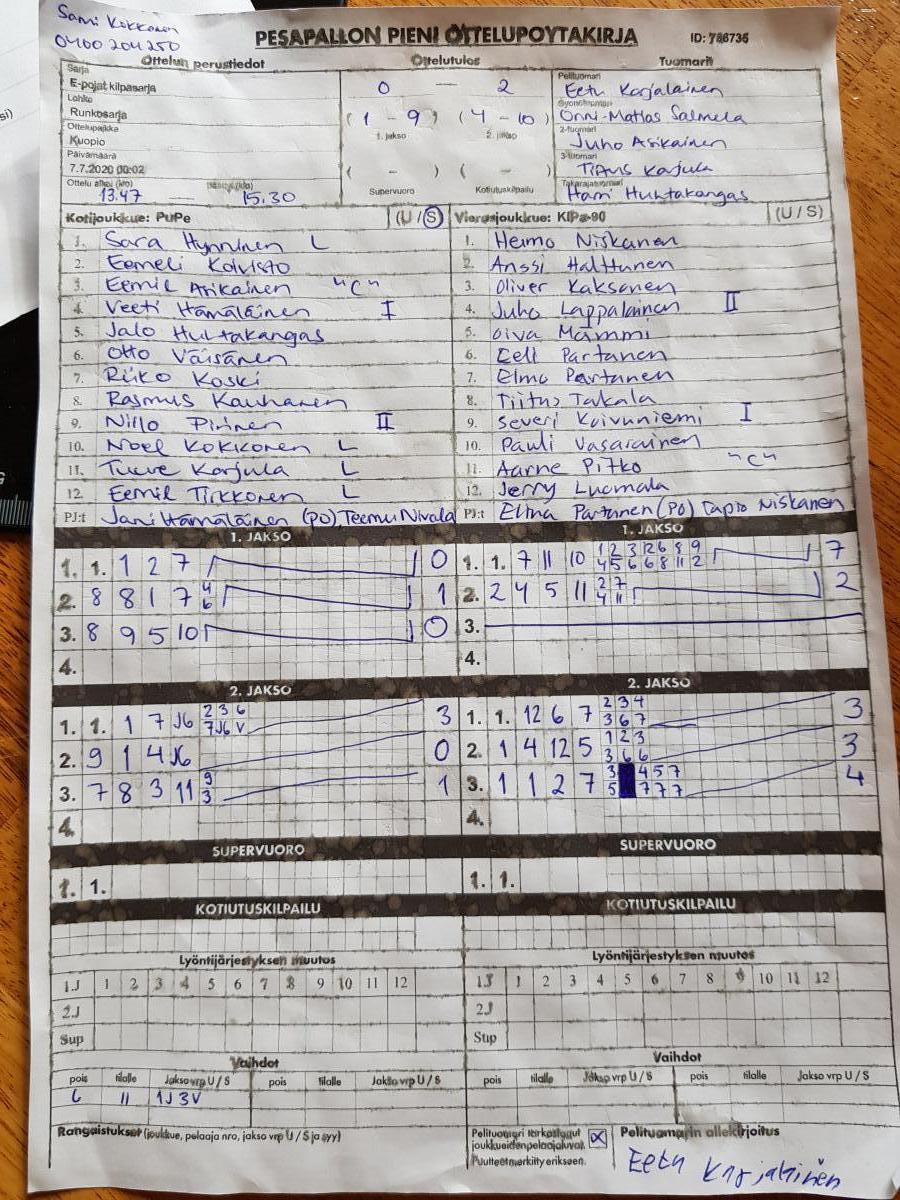 Sami Kokkonen
0400 204250
PESÄPALLON PIENI OTTELUPÖYTÄKIRJA
ID: 786735
Ottelun perustiedot
Ottelutulos
Tuomarit
Sarja
E-pojat kilpasarja
Lohko
Runkosarja
Ottelupaikka
Kuopio
Päivämäärä
7.7.2020 00:02
Ottelu alkoi (klo)
13.47 — 15.30
0 — 2
(1 - 9) (4 - 10)
1. jakso 2. jakso
( - ) ( - )
Supervuoro Kotiutuskilpailu
Pelituomari
Eetu Karjalainen
Syöttötuomari
Onni-Matias Salmela
2-tuomari
Juho Asikainen
3-tuomari
Titus Karjula
Takarajatuomari
Harri Huhtakangas
Kotijoukkue: PuPe (U / S)
1. Sara Hynninen L
2. Eemeli Koivisto
3. Eemil Asikainen "C"
4. Veeti Hämäläinen I
5. Jalo Huhtakangas
6. Otto Väisänen
7. Riiko Koski
8. Rasmus Kauhanen
9. Niilo Pirinen II
10. Noel Kokkonen L
11. Tuure Karjula L
12. Eemil Tirkkonen L
PJ:t Jani Hämäläinen (PO) Teemu Nivala
Vierasjoukkue: KiPa-90 (U / S)
1. Heimo Niskanen
2. Anssi Halttunen
3. Oliver Kaksonen
4. Juho Lappalainen II
5. Oiva Mammi
6. Eeli Partanen
7. Elmo Partanen
8. Tiitus Takala
9. Severi Koivuniemi I
10. Pauli Vasarainen
11. Aarne Pitko "C"
12. Jerry Luomala
PJ:t Elina Partanen (PO) Tapio Niskanen
1. JAKSO
1. 1. 1 2 7 0
2. 8 8 1 7 4 1
6
3. 8 9 5 10 0
4.
1. JAKSO
1. 1. 7 11 10 1 2 3 12 6 8 9 7
4 5 6 6 8 11 2
2. 2 4 5 11 2 7 2
4 11
3.
4.
2. JAKSO
1. 1. 1 7 J6 2 3 6 3
7 J6 V
2. 9 1 4 J6 0
3. 7 8 3 11 9 1
3
4.
2. JAKSO
1. 1. 12 6 7 2 3 4 3
3 6 7
2. 1 4 12 5 1 2 3 3
3 6 6
3. 1 1 2 7 3 4 5 7 4
5 7 7 7
4.
SUPERVUORO
1. 1.
SUPERVUORO
1. 1.
KOTIUTUSKILPAILU
KOTIUTUSKILPAILU
Lyöntijärjestyksen muutos
1J 1 2 3 4 5 6 7 8 9 10 11 12
2J
Sup
Lyöntijärjestyksen muutos
1J 1 2 3 4 5 6 7 8 9 10 11 12
2J
Sup
Vaihdot
pois tilalle Jakso vrp U / S pois tilalle Jakso vrp U / S
6 11 1J 3V
Vaihdot
pois tilalle Jakso vrp U / S pois tilalle Jakso vrp U / S
Rangaistukset (joukkue, pelaaja nro, jakso vrp U / S ja syy)
Pelituomari tarkastanut
joukkueiden pelaajaluvat.
Puutteet merkitty erikseen.
Pelituomarin allekirjoitus
Eetu Karjalainen